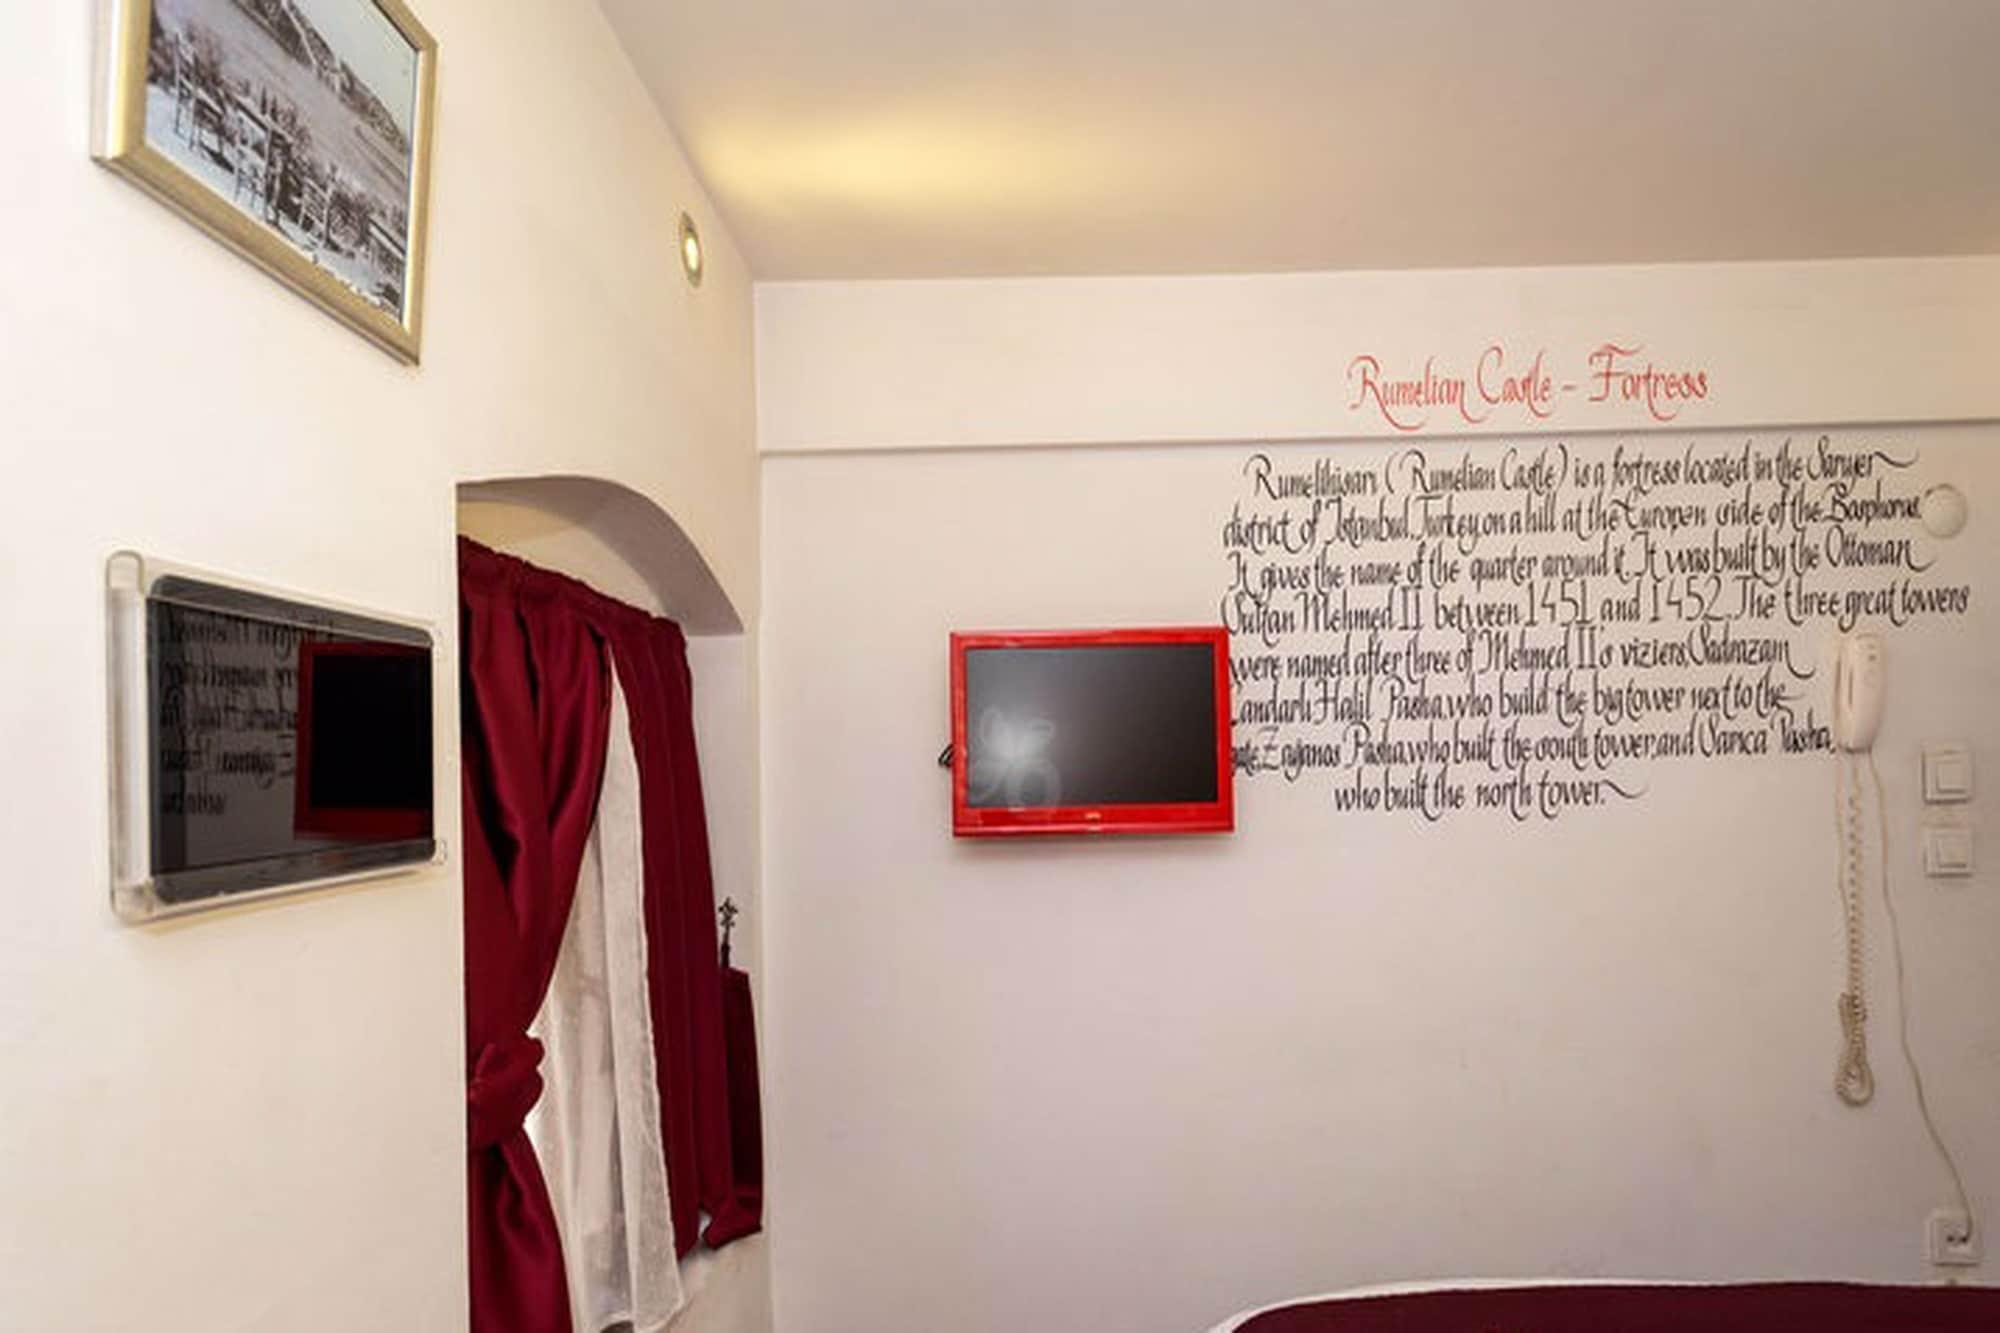 Rumelian Castle - Fortress
Rumelihisarı (Rumelian Castle) is a fortress located in the Sarıyer
district of Istanbul, Turkey, on a hill at the Europen side of the Bosphorus.
It gives the name of the quarter around it. It was built by the Ottoman
Sultan Mehmed II between 1451 and 1452. The three great towers
were named after three of Mehmed II's viziers, Sadrazam
Candarlı Halil Pasha, who build the big tower next to the
gate, Zağanos Pasha, who built the south tower, and Sarıca Pasha,
who built the north tower.